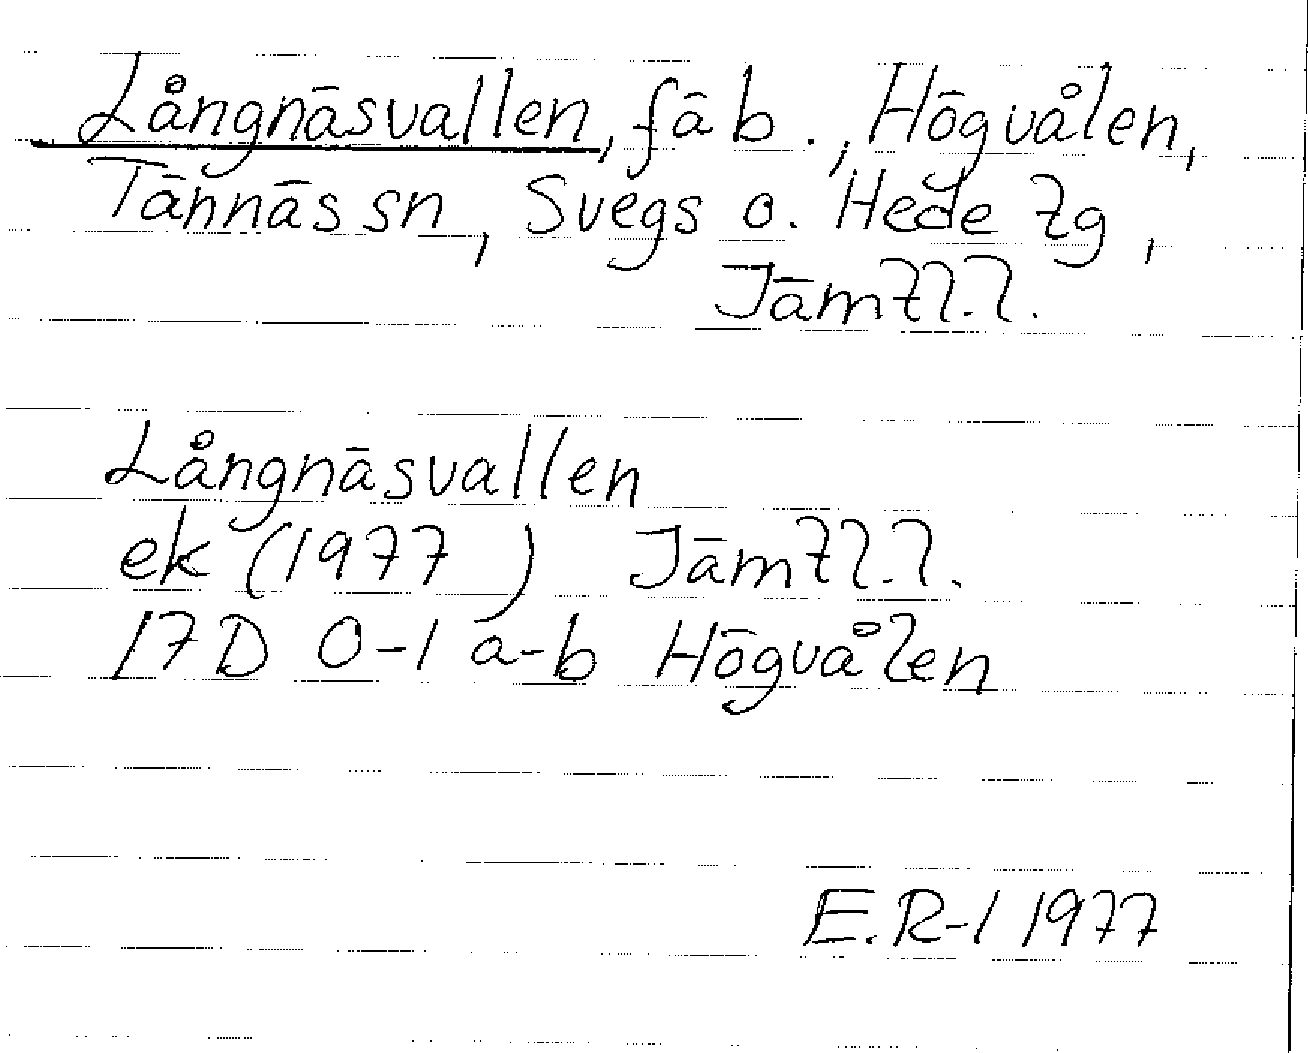 Långnäsvallen, fäb., Högvålen,
Tännäs sn, Svegs o. Hede tg,
Jämtl.l.
Långnäsvallen
ek (1977) Jämtl.l.
17D 0-1 a-b Högvålen
E.R-l 1977